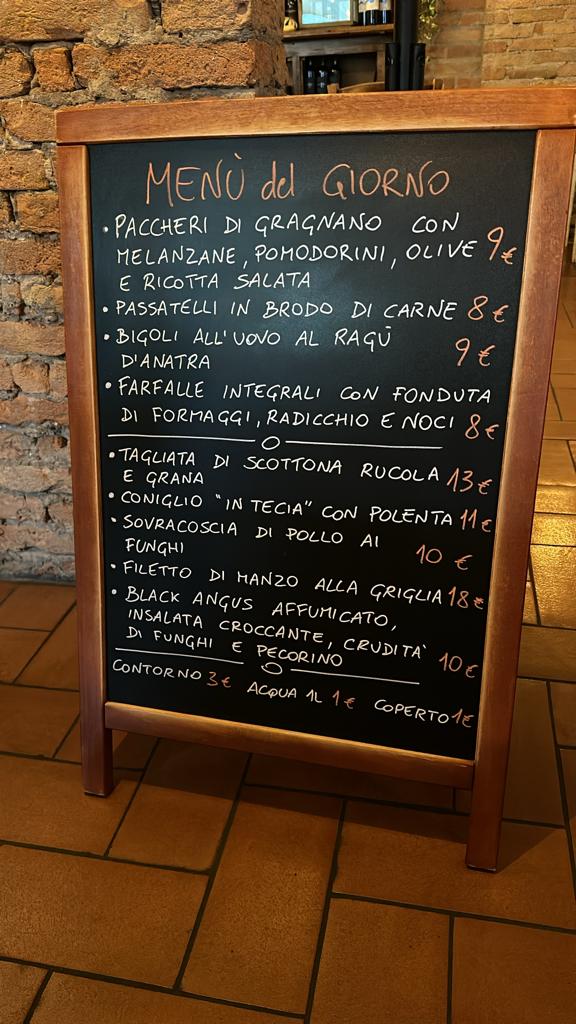 MENÙ del GIORNO
• PACCHERI DI GRAGNANO CON
MELANZANE, POMODORINI, OLIVE 9€
E RICOTTA SALATA
• PASSATELLI IN BRODO DI CARNE 8€
• BIGOLI ALL'UOVO AL RAGÙ
D'ANATRA 9€
• FARFALLE INTEGRALI CON FONDUTA
DI FORMAGGI, RADICCHIO E NOCI 8€
• TAGLIATA DI SCOTTONA RUCOLA 13€
E GRANA
• CONIGLIO "IN TECIA" CON POLENTA 11€
• SOVRACOSCIA DI POLLO AI
FUNGHI 10 €
• FILETTO DI MANZO ALLA GRIGLIA 18€
• BLACK ANGUS AFFUMICATO,
INSALATA CROCCANTE, CRUDITA'
DI FUNGHI E PECORINO 10€
CONTORNO 3€ ACQUA 1L 1€ COPERTO 1€